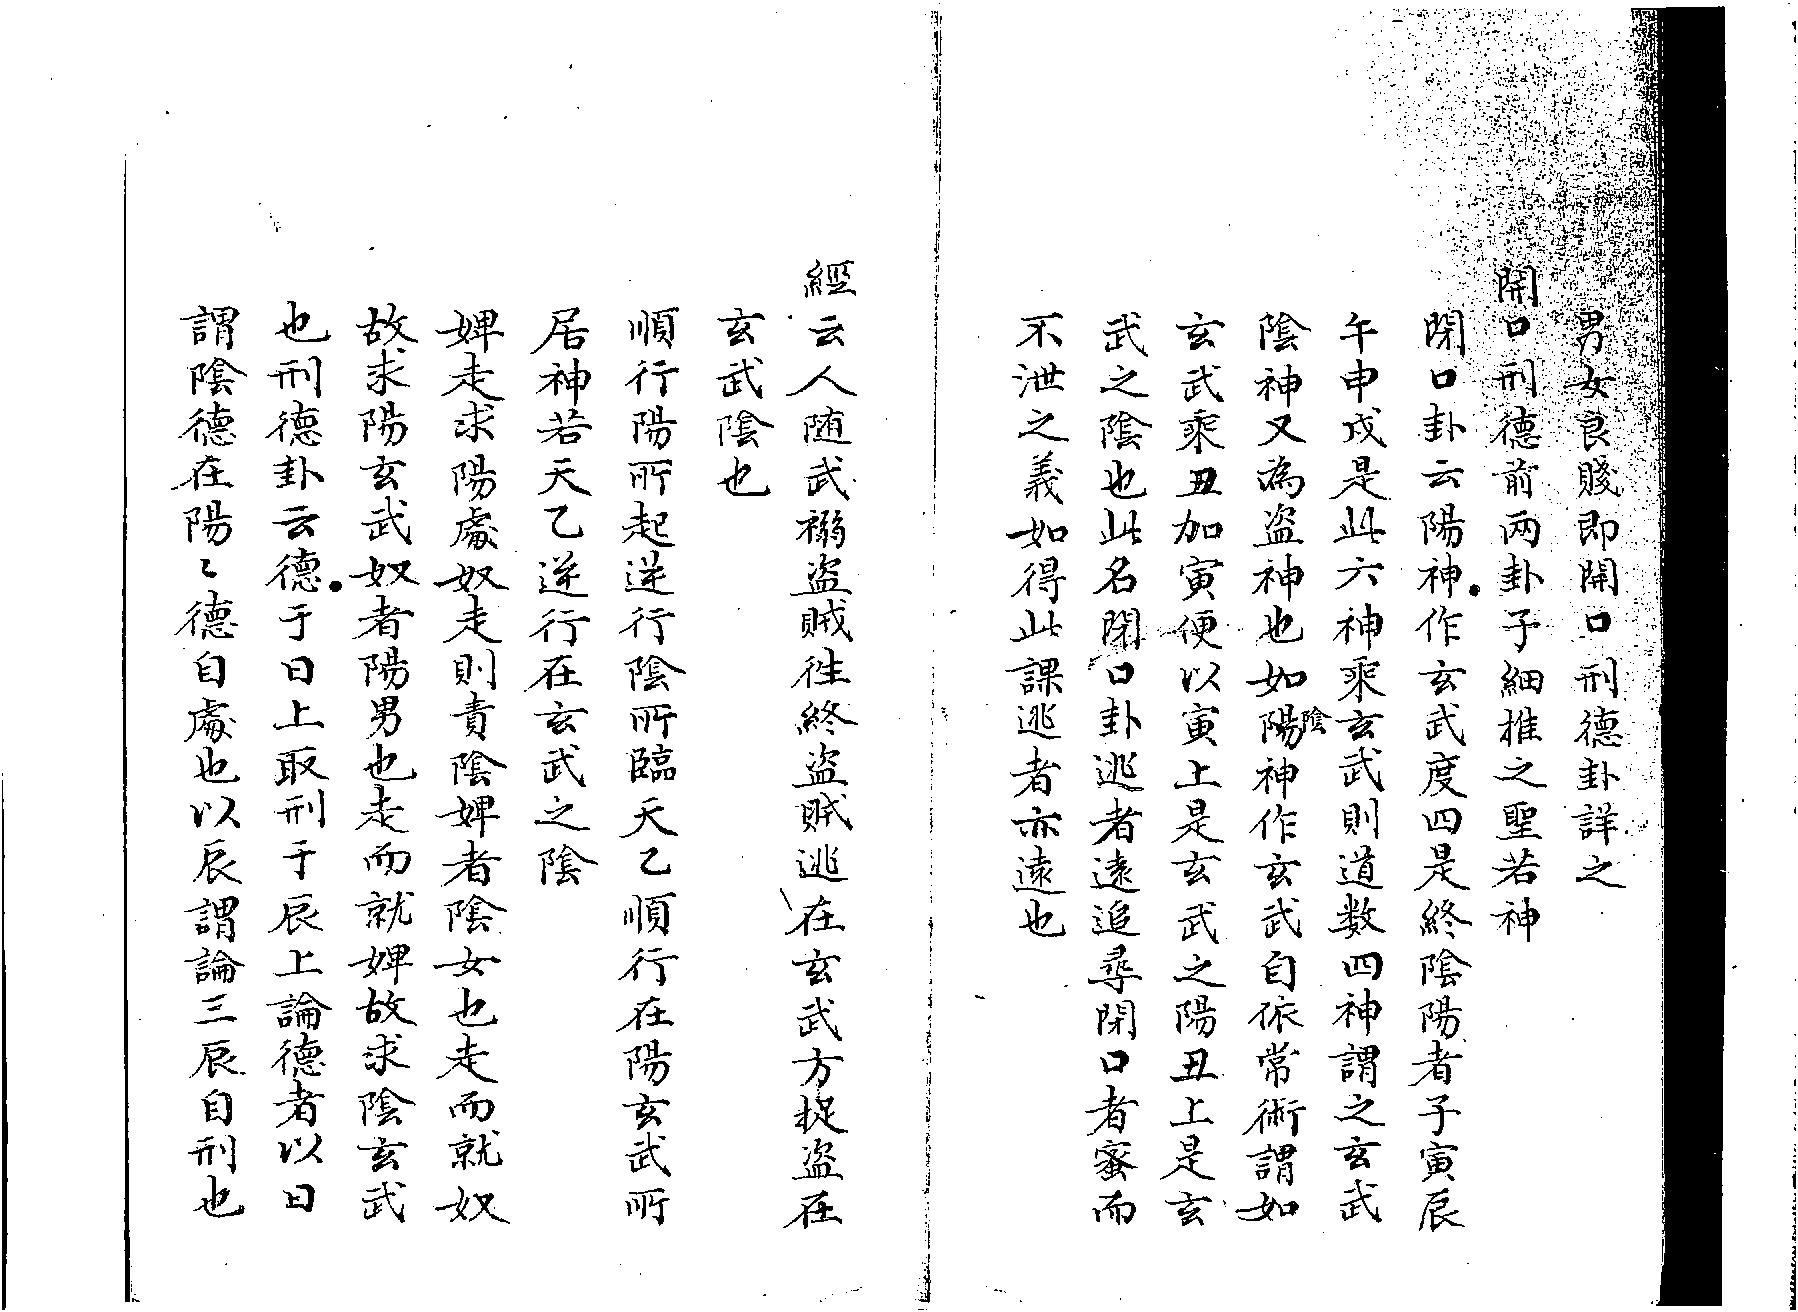 男女良賤即開口刑德卦詳之
開口刑德前兩卦子細推之聖若神
閉口卦云陽神作玄武度四是終陰陽者子寅辰
午申戌是此六神乘玄武則道数四神謂之玄武
陰神又為盗神也如陽陰神作玄武自依常術謂如
玄武乘丑加寅便以寅上是玄武之陽丑上是玄
武之陰也此名閉口卦逃者遠追尋閉口者蜜而
不泄之義如得此課逃者亦遠也
經云人随武禍盗賊徃終盗賊逃在玄武方捉盗在
玄武陰也
順行陽所起逆行陰所臨天乙順行在陽玄武所
居神若天乙逆行在玄武之陰
婢走求陽處奴走則責陰婢者陰女也走而就奴
故求陽玄武奴者陽男也走而就婢故求陰玄武
也刑德卦云德于日上取刑于辰上論德者以日
謂陰德在陽〻德自處也以辰謂論三辰自刑也